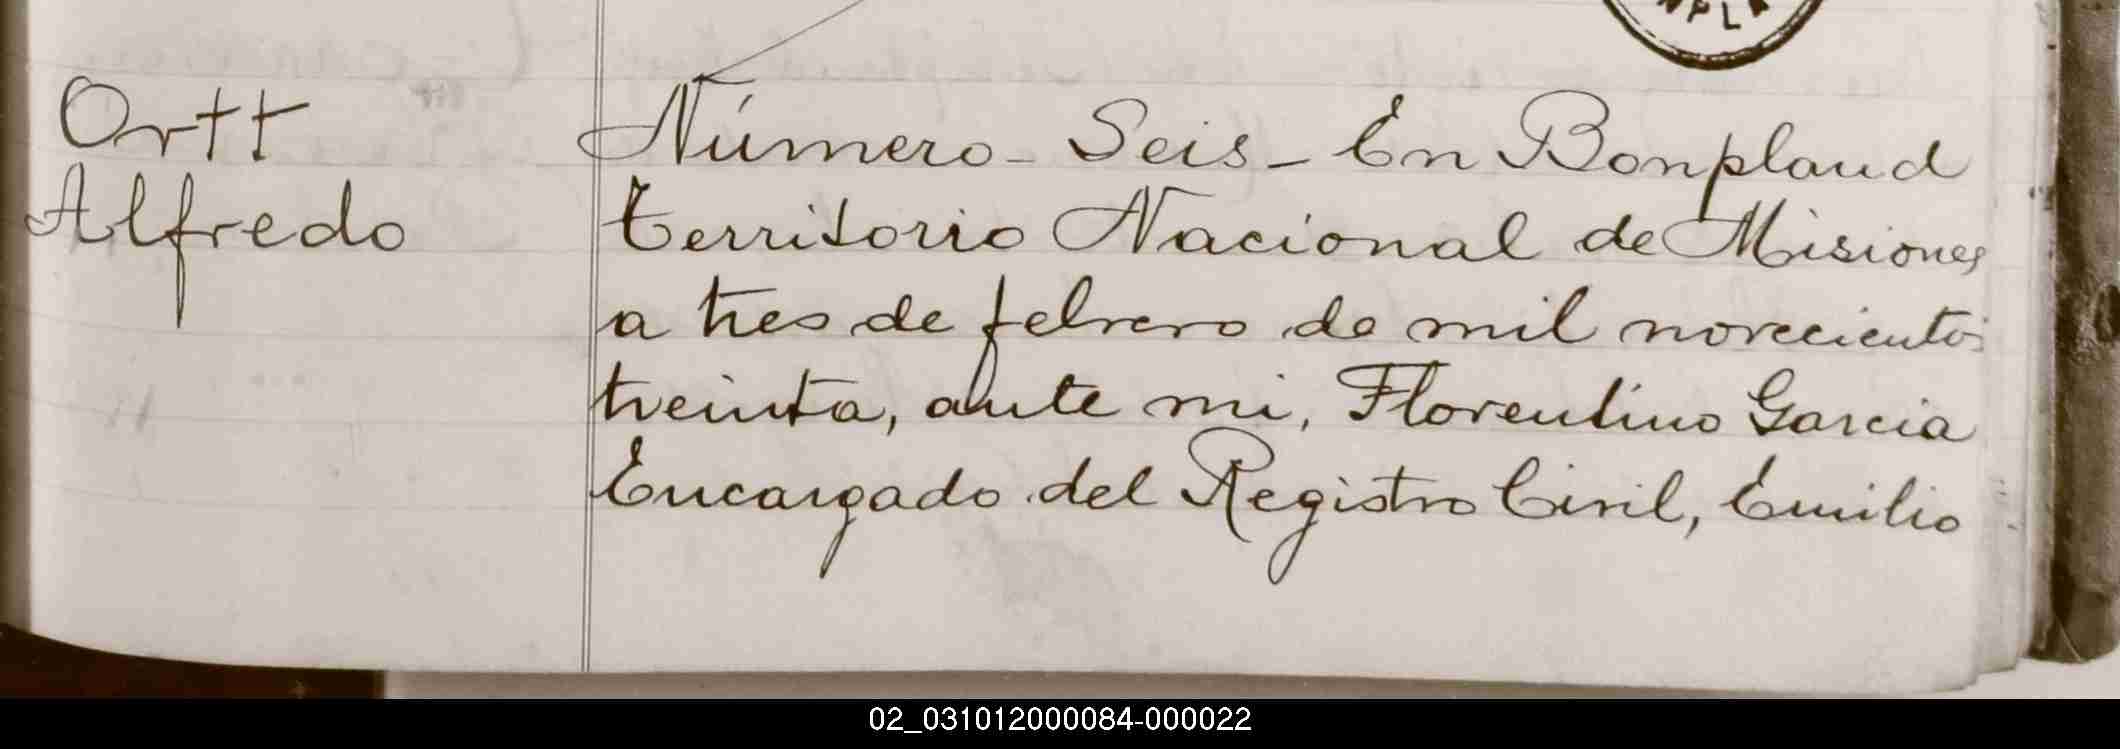 Ortt
Alfredo
Número - Seis - En Bonpland
territorio Nacional de Misiones
a tres de febrero de mil novecientos
treinta, ante mi, Florentino Garcia
Encargado del Registro Civil, Emilio
02_031012000084-000022